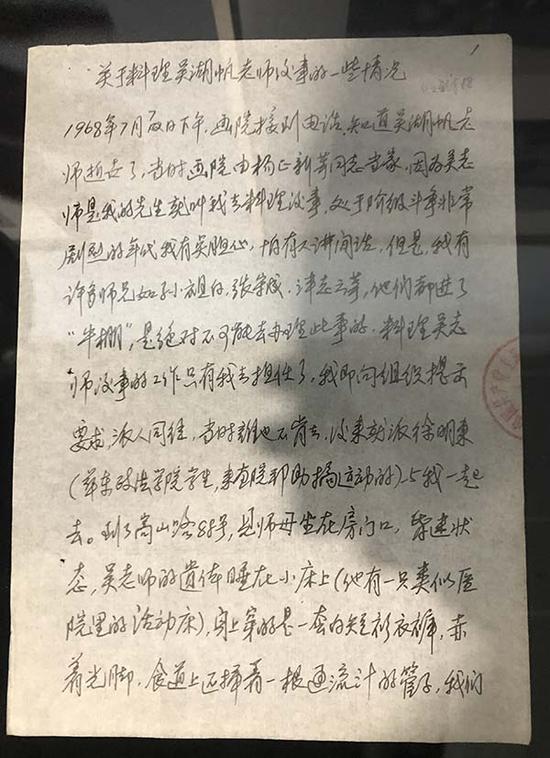 1
关于料理吴湖帆老师后事的一些情况
1968年7月 日下午,画院接到电话,知道吴湖帆老
师逝去了,当时画院由杨正新等同志当家,因为吴老
师是我的先生就叫我去料理后事,处于阶级斗争非常
剧烈的年代我有点胆心,怕有不讲闲话,但是,我有
许多师兄如孙祖白、张守成、 等,他们都进了
“牛棚”,是绝对不可能去办理此事的,料理吴老
师后事的工作只有我去担任了,我即向组织提出
要求,派人同往,当时谁也不肯去,后来就派徐明东
(华东政法学院学生,来画院帮助搞运动的)与我一起
去。到了嵩山路88号,见师母坐在房门口, 状
态,吴老师的遗体睡在小床上(他有一只类似医
院里的活动床),身上穿的是一套白短衫衣裤,赤
着光脚,食道上还插着一根通流汁的管子,我们